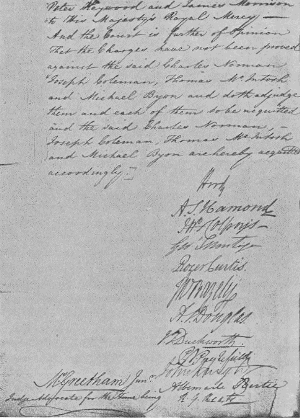 Peter Haywood and James Morrison
to His Majesty's Royal Mercy —
And the Court is further of Opinion
That the Charges have not been proved
against the said Charles Norman,
Joseph Coleman, Thomas McIntosh
and Michael Byon and doth adjudge
them and each of them to be acquitted
and the said Charles Norman, —
Joseph Coleman, Thomas McIntosh
and Michael Byon are hereby acquitted
accordingly —
Hood
A S Hamond
Jno Colpoys
Geo Montagu
Roger Curtis.
A S Douglas
Duckworth
John Knight
Albemarle Bertie
R G Keats
M Greetham Junr
Judge Advocate for the Time being